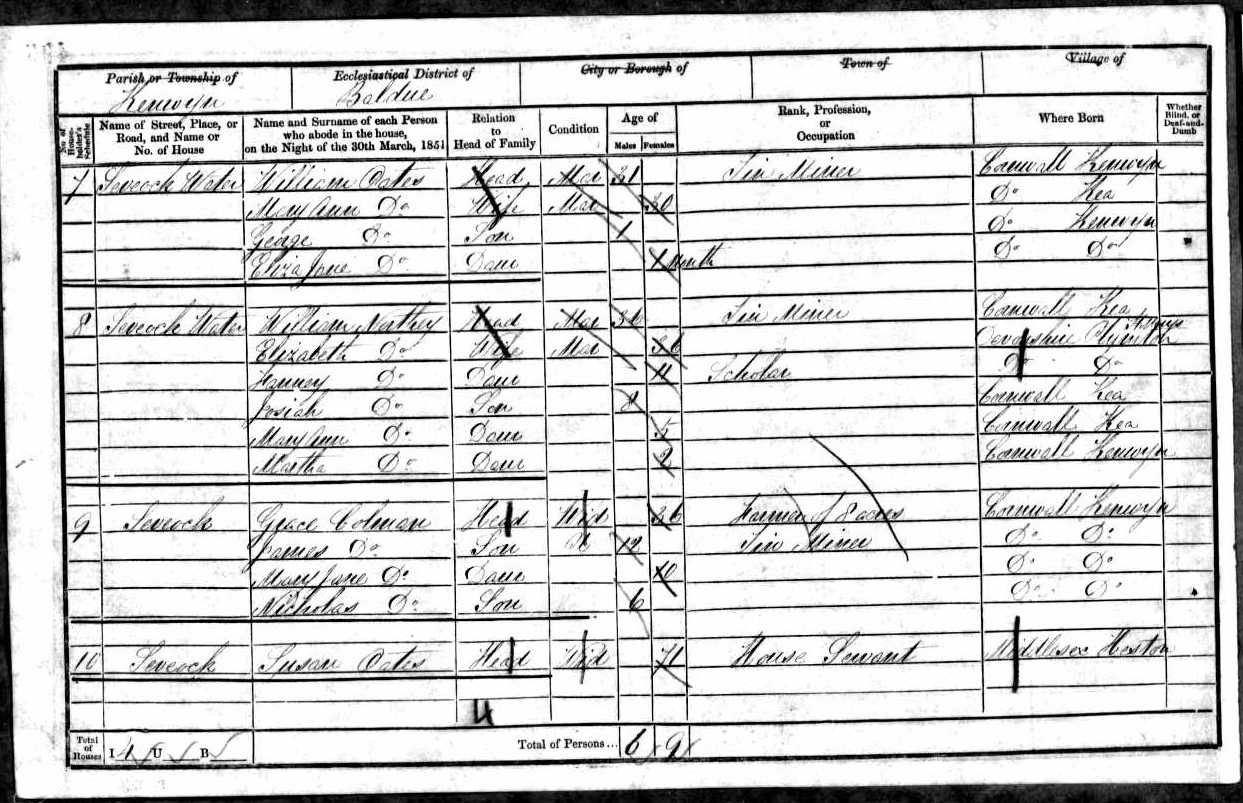 Parish or Township of
Ecclesiastical District of
City or Borough of
Town of
Village of
Kenwyn
Baldue
No of House-holder's Schedule
Name of Street, Place, or Road, and Name or No. of House
Name and Surname of each Person who abode in the house, on the Night of the 30th March, 1851
Relation to Head of Family
Condition
Age of
Males Females
Rank, Profession, or Occupation
Where Born
Whether Blind, or Deaf-and-Dumb
7 Seveock Water William Oates Head Mar 31 Tin Miner Cornwall Kenwyn
Mary Ann Do Wife Mar 30 Do Kea
George Do Son 1 Do Kenwyn
Eliza Jane Do Daur 1 Month Do Do
8 Seveock Water William Northey Head Mar 36 Tin Miner Cornwall Kea
Elizabeth Do Wife Mar 36 Devonshire Plympton
Fanney Do Daur 11 Scholar Do Do
Josiah Do Son 8 Cornwall Kea
Mary Ann Do Daur 5 Cornwall Kea
Martha Do Daur 2 Cornwall Kenwyn
9 Seveock Grace Colman Head Wid 36 Farmer of 8 acres Cornwall Kenwyn
James Do Son U 12 Tin Miner Do Do
Mary Jane Do Daur 10 Do Do
Nicholas Do Son 6 Do Do
10 Seveock Susan Oates Head Wid 71 House Servant Middlesex Heston
4
Total of Houses I 4 U B
Total of Persons... 6 9